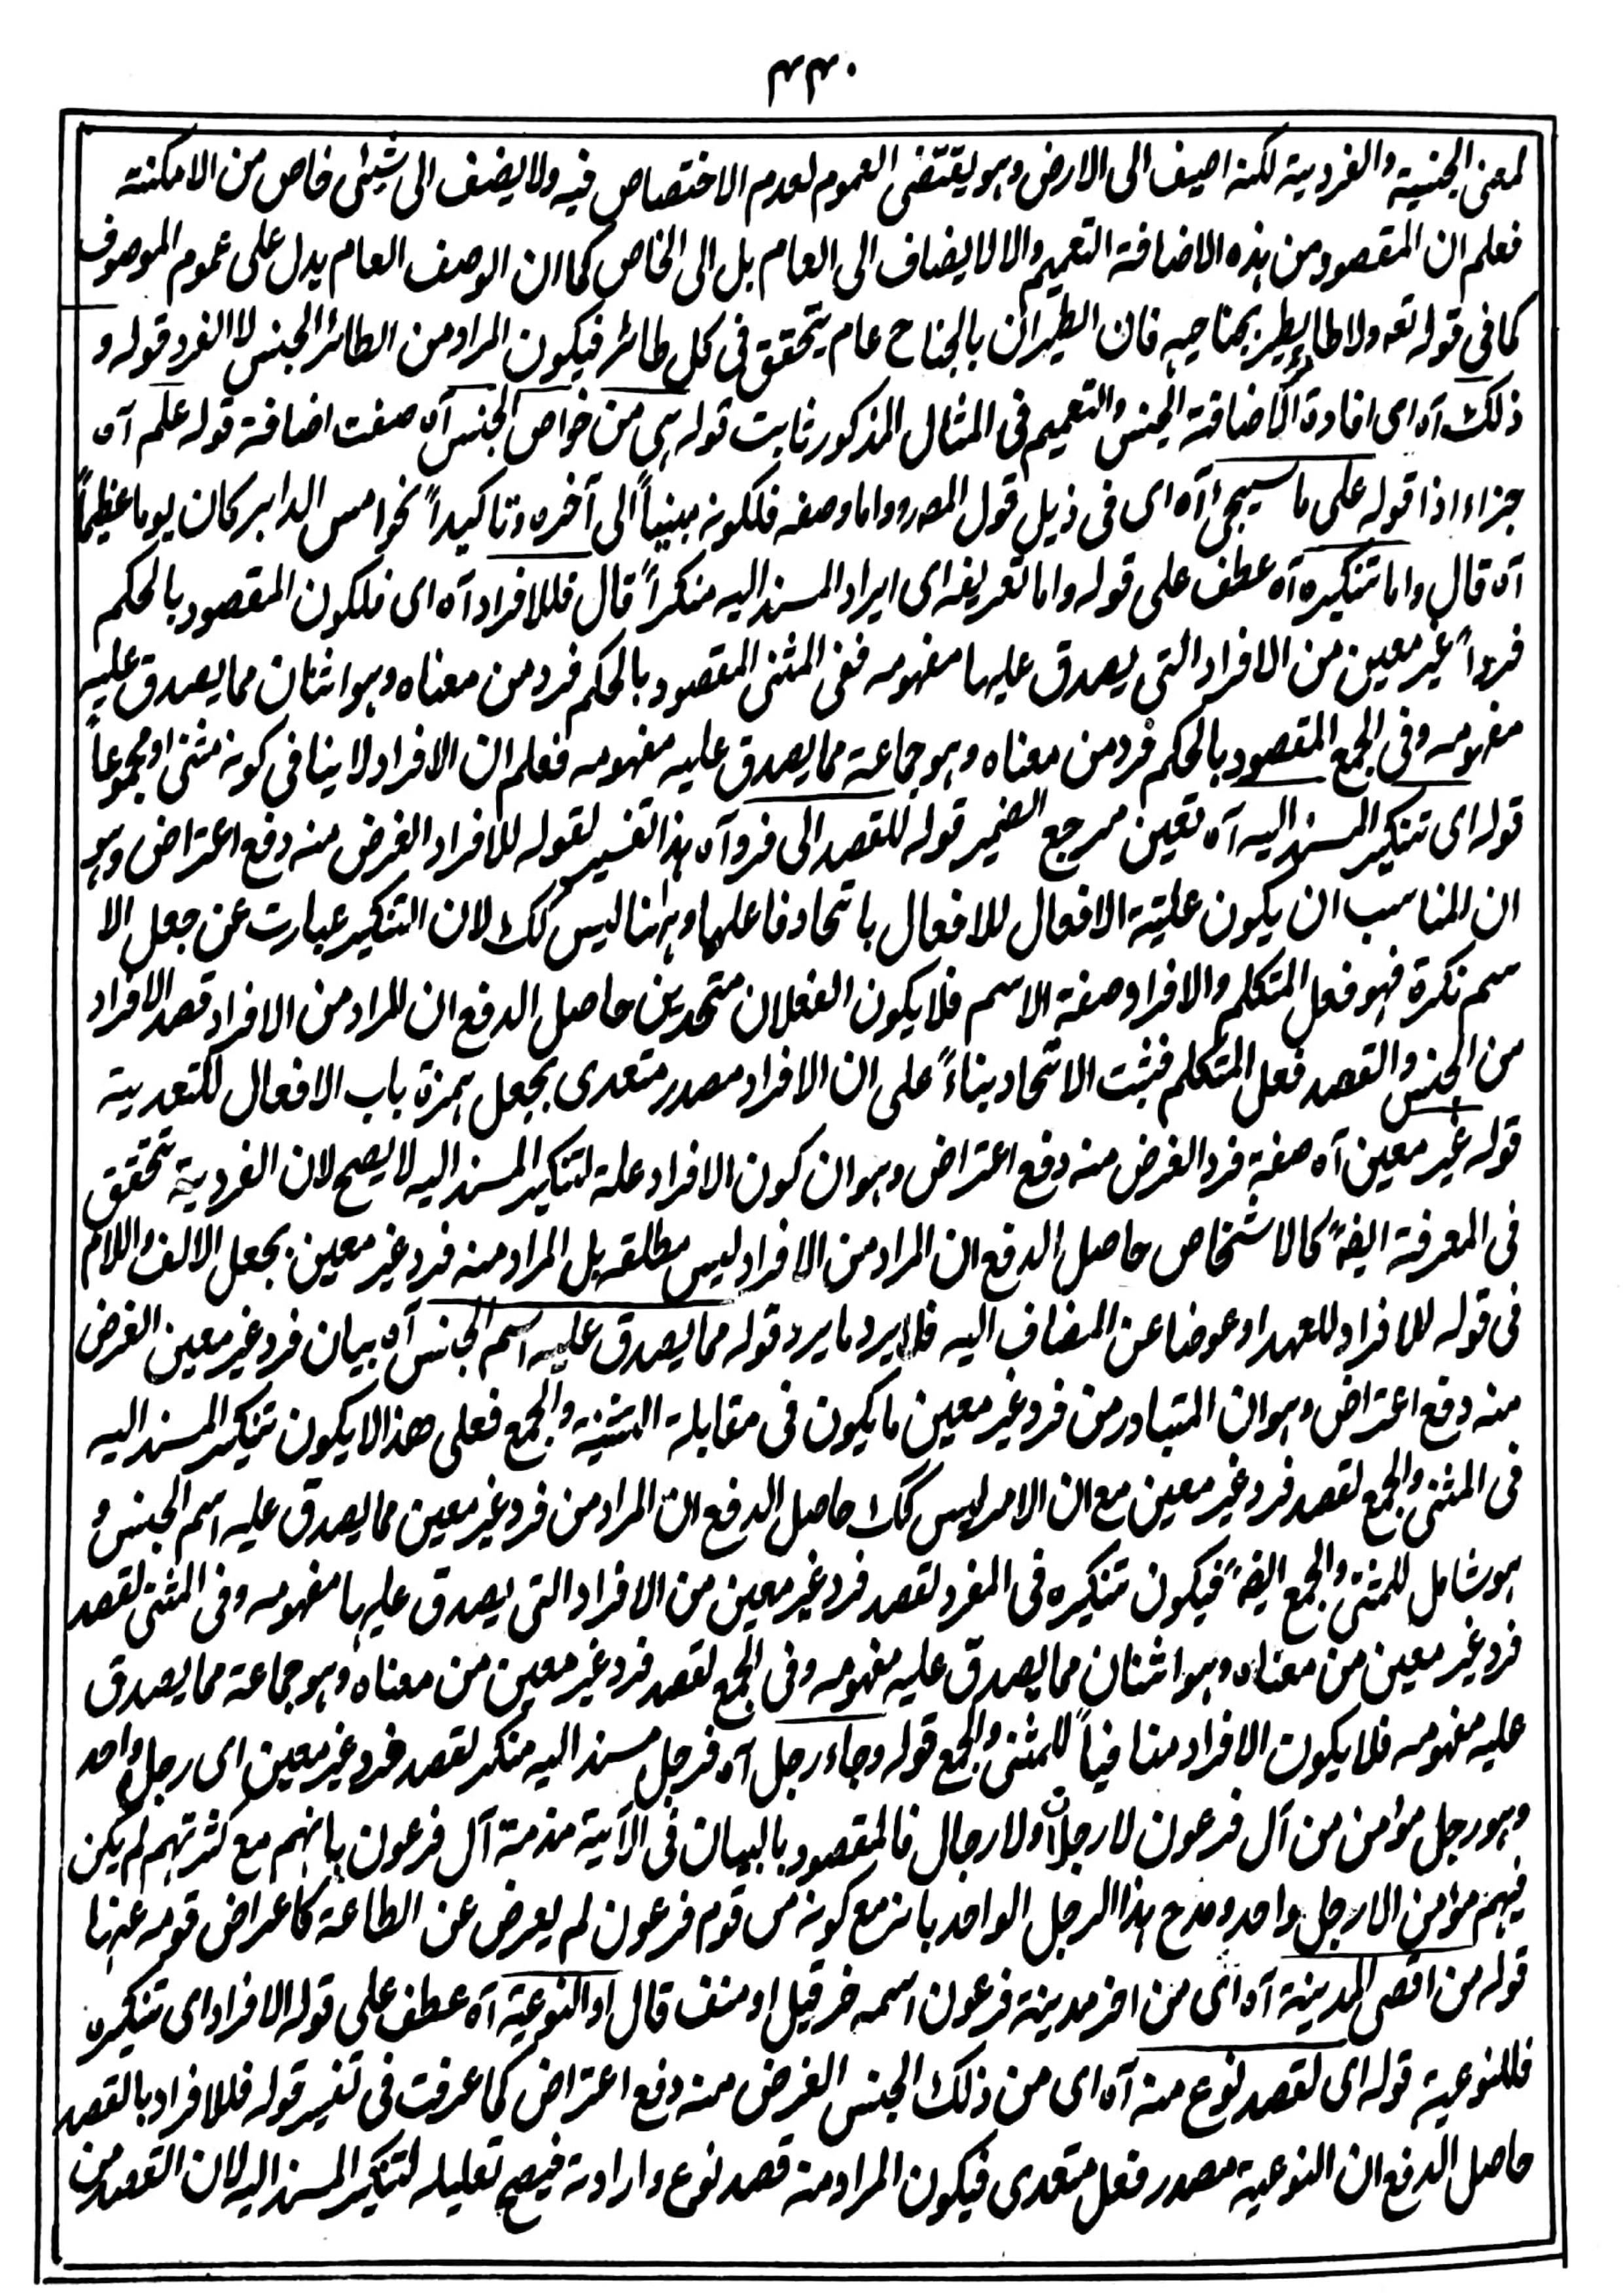 ۳۳۰
لمعنى الجنسية والفردية لكنه اضيف الى الارض وهو يقتضى العموم لعدم الاختصاص فيه ولا يضف الى شيئى خاص من الامكنته
فعلم ان المقصود من هذه الاضافة التعميم والا لا يضاف الى العام بل الى الخاص كما ان الوصف العام يدل على عموم الموصوف
كما فى قوله تعه ولا طائر يطير بجناحيه فان الطيران بالجناح عام يتحقق فى كل طائر فيكون المراد من الطائر الجنس لا الفرد قوله و
ذلك آه اى افادة الاضافة الجنس والتعميم فى المثال المذكور ثابت قوله هى من خواص الجنس آه صفت اضافة قوله علم آه
جزاء اذا قوله على ما سيجئ آه اى فى ذيل قول المصرو واما وصفه فلكونه مبنياً الى آخره وتاكيداً نحو امس الدابر كان يوما عظيماً
آه قال واما تنكيره آه عطف على قوله واما تعريفه اى ايراد المسند اليه منكراً قال فللافراد آه اى فلكون المقصود بالحكم
فرداً غير معين من الافراد التى يصدق عليها مفهومه ففى المثنى المقصود بالحكم فرد من معناه وهو اثنان مما يصدق عليه
مفهومه وفى الجمع المقصود بالحكم فرد من معناه وهو جماعة مما يصدق عليه مفهومه فعلم ان الافراد لا ينافى كونه مثنى او مجموعاً
قوله اى تنكير المسند اليه آه تعين مرجع الضمير قوله للقصد الى فرد آه هذا تفسير لقوله للافراد الغرض منه دفع اعتراض وهو
ان المناسب ان يكون علية الافعال للافعال باتحاد فاعلهما وههنا ليس كك لان التنكير عبارت عن جعل الا
سم نكرة فهو فعل المتكلم والافراد صفة الاسم فلا يكون الفعلان متحدين حاصل الدفع ان المراد من الافراد قصد الافراد
من الجنس والقصد فعل المتكلم فثبت الاتحاد بناءً على ان الافراد مصدر متعدى بجعل همزة باب الافعال للتعدية
قوله غير معين آه صفة فرد الغرض منه دفع اعتراض وهو ان كون الافراد علة لتنكير المسند اليه لا يصح لان الفردية تتحقق
فى المعرفة ايضهً كالاشخاص حاصل الدفع ان المراد من الافراد ليس مطلقه بل المراد منه فرد غير معين بجعل الالف واللام
فى قوله للافراد للعهد او عوضا عن المضاف اليه فلا يرد ما يرد قوله مما يصدق عليه اسم الجنس آه بيان فرد غير معين الغرض
منه دفع اعتراض وهو ان المتبادر من فرد غير معين ما يكون فى مقابلة التثنية والجمع فعلى هذا لا يكون تنكير المسند اليه
فى المثنى والجمع لقصد فرد غير معين مع ان الامر ليس كك حاصل الدفع ان المراد من فرد غير معين مما يصدق عليه اسم الجنس و
هو شامل للمثنى والجمع ايضهً فيكون تنكيره فى المفرد لقصد فرد غير معين من الافراد التى يصدق عليها مفهومه وفى المثنى لقصد
فرد غير معين من معناه وهو اثنان مما يصدق عليه مفهومه وفى الجمع لقصد فرد غير معين من معناه وهو جماعة مما يصدق
عليه مفهومه فلا يكون الافراد منافياً للمثنى والجمع قوله وجاء رجل آه فرجل مسند اليه منكر لقصد فرد غير معين اى رجل واحد
وهو رجل مؤمن من آل فرعون لا رجلان ولا رجال فالمقصود بالبيان فى الآية مذمة آل فرعون بانهم مع كثرتهم لم يكن
فيهم مؤمن الا رجل واحد ومدح هذا الرجل الواحد بانه مع كونه من قوم فرعون لم يعرض عن الطاعة كاعراض قومه عنها
قوله من اقصى المدينة آه اى من اخر مدينة فرعون اسمه خرقيل او منف قال او النوعية آه عطف على قوله الافراد اى تنكيره
فللنوعية قوله اى لقصد نوع منه آه اى من ذلك الجنس الغرض منه دفع اعتراض كما عرفت فى تفسير قوله فللافراد بالقصد
حاصل الدفع ان النوعية مصدر فعل متعدى فيكون المراد منه قصد نوع وارادته فيصح تعليله لتنكير المسند اليه لان القصد من